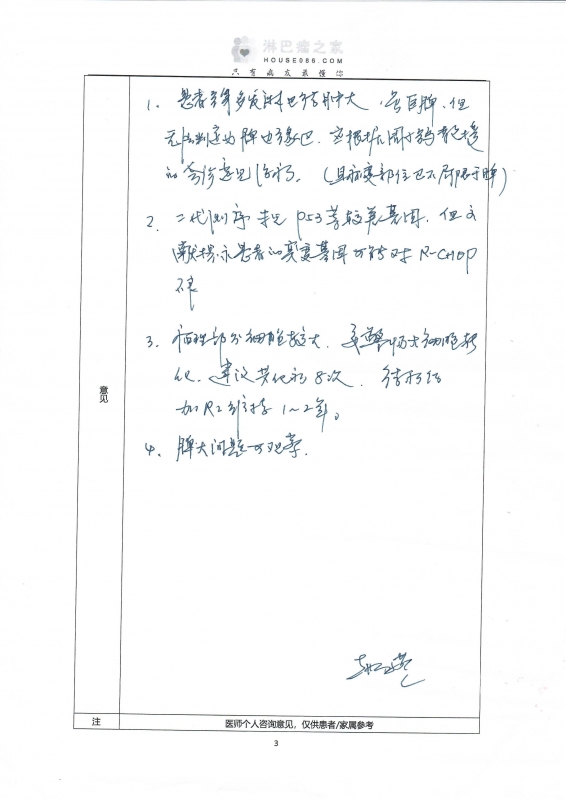 淋巴瘤之家
HOUSE086.COM
只有病友最懂你
1. 患者全身多发淋巴结肿大,虽有脾,但
无法判定为脾边缘巴,应根据周
的会诊意见治疗。(且病变部位已不局限于脾)
2. 二代测序未见P53等较差基因,但文
献提示患者的突变基因可能对R-CHOP
3. 病理部分细胞较大,大细胞转
化,建议共化疗8次,结束后
加R2维持1~2年。
4. 脾大问题可观察.
意见
注
医师个人咨询意见,仅供患者/家属参考
3